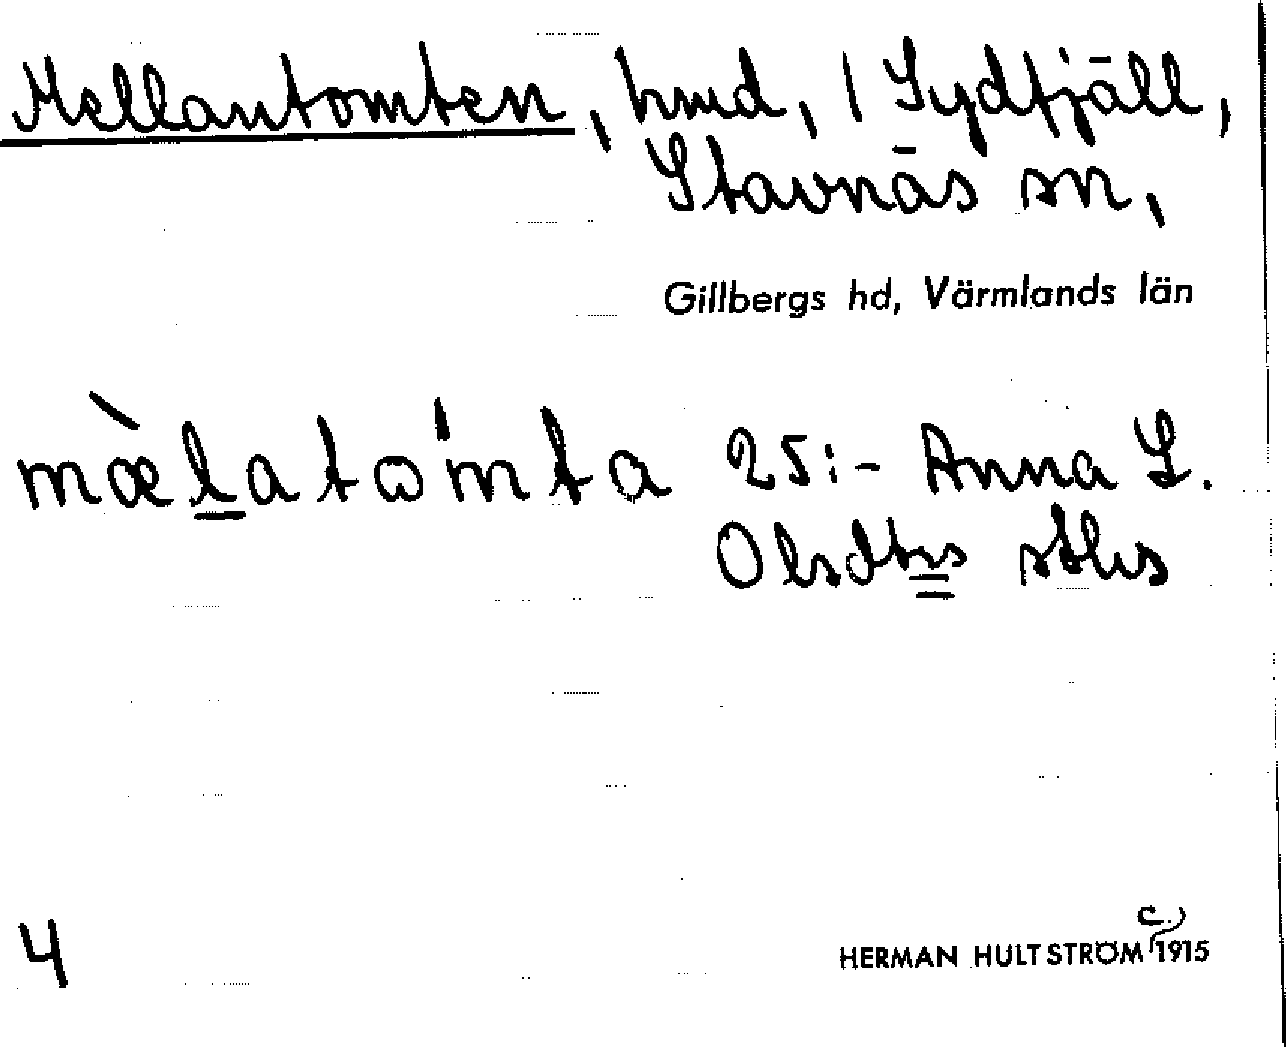 Mellantomten, hmd, 1 Sydfjäll,
Stavnäs sn,
Gillbergs hd, Värmlands län
mæ̀latω'mta 25:- Anna L.
Olsdtrs sths
4
HERMAN HULTSTRÖM (c.) 1915